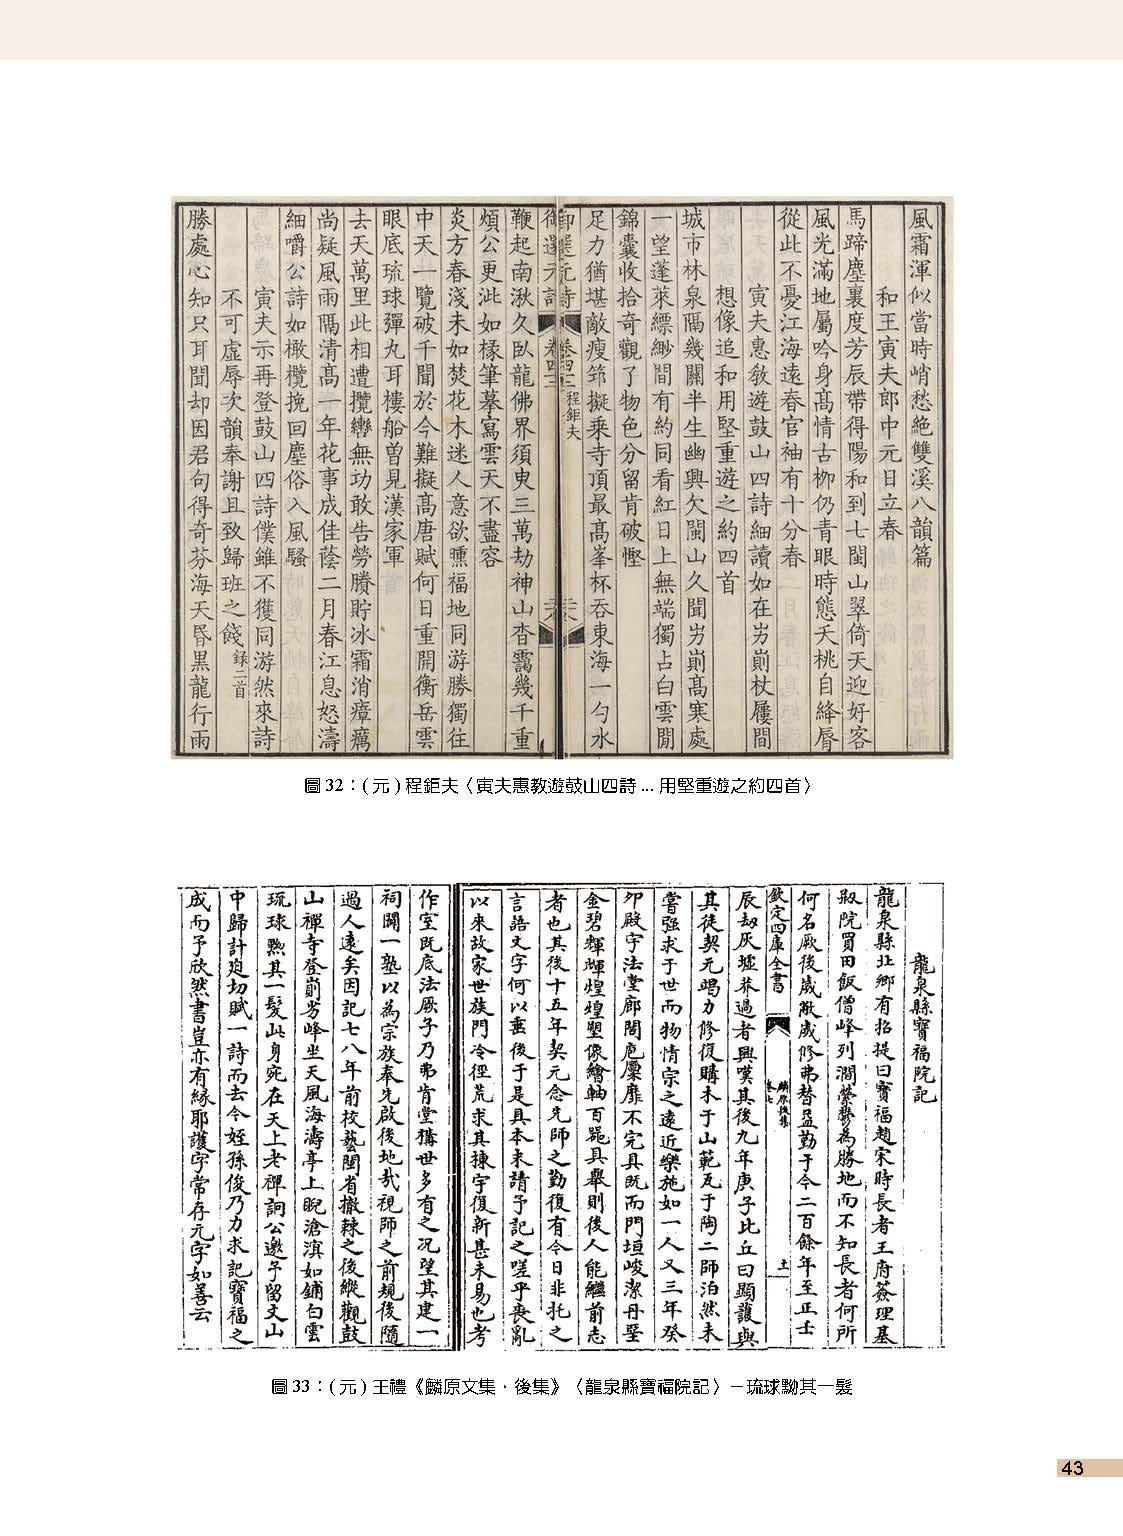 風霜渾似當時峭愁絶雙溪八韻篇
和王寅夫郎中元日立春
馬蹄塵裏度芳辰帶得陽和到七閩山翠倚天迎好客
風光滿地屬吟身髙情古柳仍青眼時態夭桃自絳脣
從此不憂江海遠春官袖有十分春
寅夫惠敎遊鼓山四詩細讀如在屴崱杖屨間
想像追和用堅重遊之約四首
城市林泉隔幾關半生幽興欠閩山久聞屴崱髙寒處
一望蓬萊縹緲間有約同看紅日上無端獨占白雲閒
錦囊收拾奇觀了物色分留肯破慳
足力猶堪敵瘦筇擬乗寺頂最髙峯杯吞東海一勺水
程鉅夫
御選元詩
鞭起南湫久臥龍佛界須臾三萬劫神山杳靄幾千重
煩公更泚如椽筆摹寫雲天不盡容
炎方春淺未如焚花木迷人意欲熏福地同游勝獨往
中天一覽破千聞於今難擬髙唐賦何日重開衡岳雲
眼底琉球彈丸耳樓船曽見漢家軍
去天萬里此相遭攬轡無功敢告勞賸貯冰霜消瘴癘
尚疑風雨隔清髙一年花事成佳蔭二月春江息怒濤
細嚼公詩如橄欖挽回塵俗入風騷
寅夫示再登鼓山四詩僕雖不獲同游然來詩
不可虛辱次韻奉謝且致歸班之餞錄二首
勝處心知只耳聞却因君句得奇芬海天昏黑龍行雨
圖 32：( 元 ) 程鉅夫〈寅夫惠教遊鼓山四詩 ... 用堅重遊之約四首〉
龍泉縣寶福院記
龍泉縣北鄉有招提曰寶福趙宋時長者王府簽理基
剏院買田飯僧峰列澗縈欝為勝地而不知長者何所
何名厥後歲敝歲修弗替益勤于今二百餘年至正壬
欽定四庫全書
麟原後集
卷七
辰刼灰墟莽過者興嘆其後九年庚子比丘曰顯護與
其徒契元竭力修復購木于山範瓦于陶二師泊然未
嘗强求于世而物情宗之遠近樂施如一人又三年癸
夘殿宇法堂廊閣庖廩靡不完具既而門垣峻潔丹堊
金碧輝煇煌煌塑像繪軸百器具舉則後人能繼前志
者也其後十五年契元念先師之勤復有今日非托之
言語文字何以垂後于是具本末請予記之嗟乎喪亂
以來故家世族門冷徑荒求其棟宇復新甚未易也考
作室既底法厥子乃弗肯堂構世多有之况望其建一
祠闢一塾以為宗族奉先啟後地哉視師之前規後隨
過人遠矣因記七八年前校藝閩省撤棘之後縱觀鼓
山禪寺登崱屴峰坐天風海濤亭上睨滄溟如鋪白雲
琉球㸃其一髮此身宛在天上老禪詞公邀予留文山
中歸計廹切賦一詩而去今姪孫俊乃力求記寶福之
成而予欣然書豈亦有緣耶護字常存元字如善云
圖 33：( 元 ) 王禮《麟原文集・後集》〈龍泉縣寶福院記〉－琉球黝其一髮
43